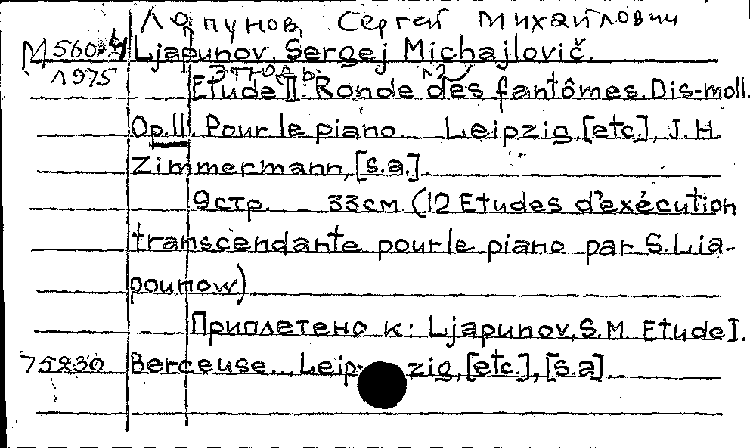 Ляпунов, Сергей Михайлович
М560.4 Ljapunov, Sergej Michajlovič.
1975 Этюды. №2
Etude II. Ronde des fantômes. Dis-moll.
Op.11. Pour le piano. Leipzig, [etc.], J.H.
Zimmermann, [s.a.].
9 стр. 33 см. (12 Etudes d'exécution
transcendante pour le piano par S. Lia-
pounow)
Приплетено к: Ljapunov, S.M. Etude I.
75830 Berceuse... Leipzig, [etc.], [s.a]